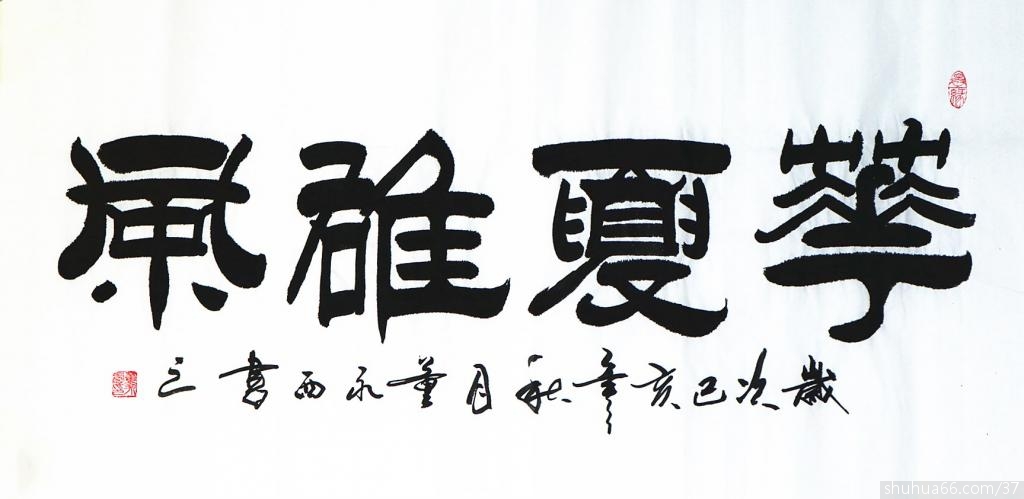 華夏雄風
歲次己亥年秋月董永西書之
shuhua66.com/37